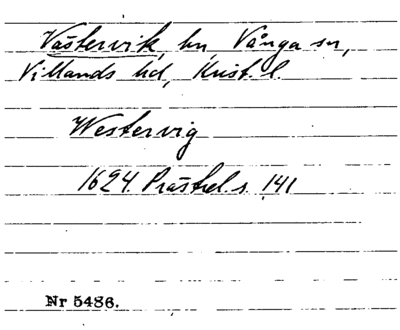 Västervik, by, Vånga sn,
Villands hd, Krist. l.
Westervig
1624. Prästrel. s. 141
Nr 5486.